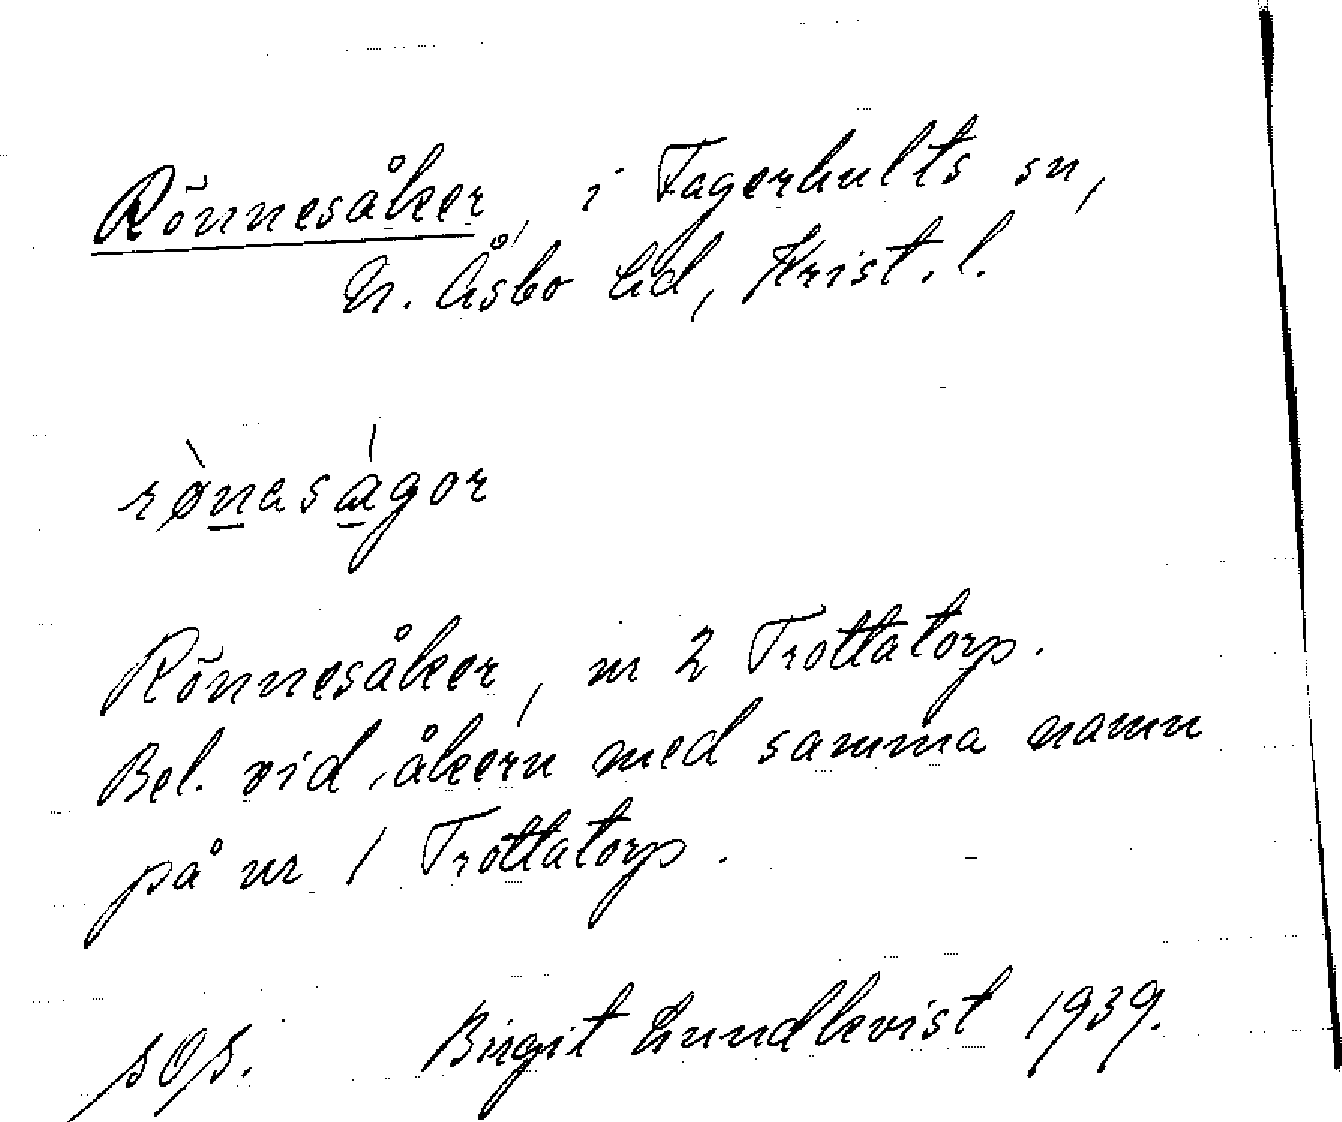 Rönnesåker, i Fagerhults sn,
N. Åsbo hd, Krist. l.
rø̀naságor
Rönnesåker, nr 2 Trottatorp.
Bel. vid åkern med samma namn
på nr 1 Trottatorp.
Birgit Lundkvist 1939.